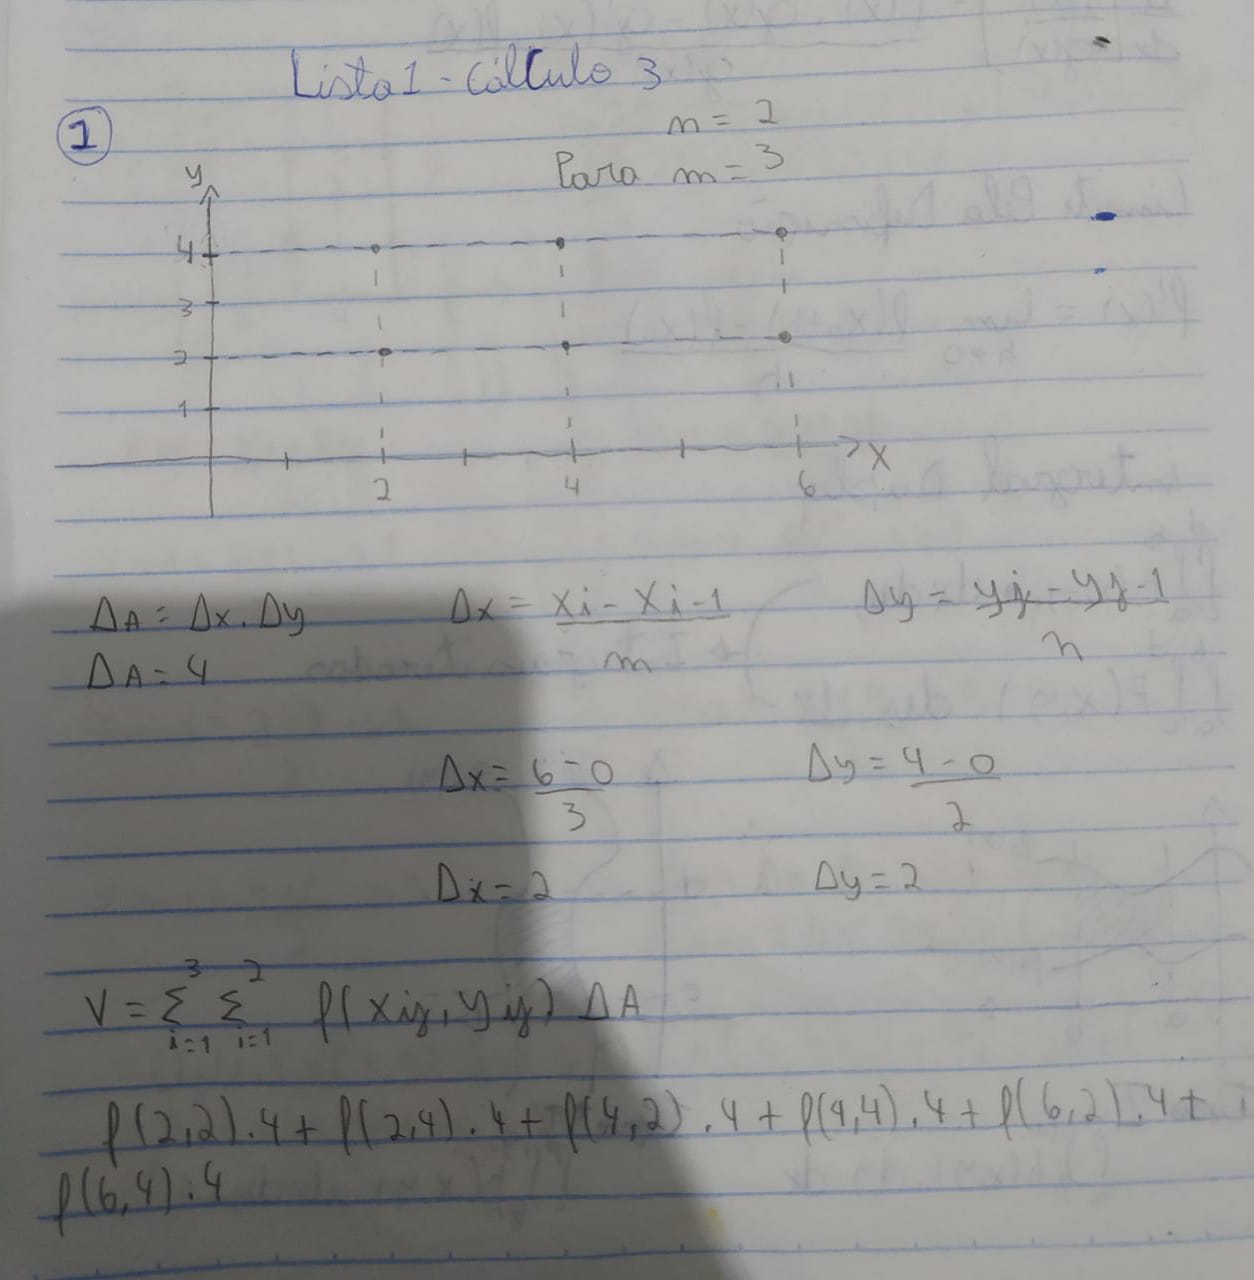 Lista 1 - Cálculo 3
1
n = 2
Para m = 3
y
4
3
2
1
x
2 4 6
ΔA = Δx . Δy Δx = xi - xi-1 / m Δy = yj - yj-1 / n
ΔA = 4
Δx = 6 - 0 / 3 Δy = 4 - 0 / 2
Δx = 2 Δy = 2
V = 3 Σ i=1 2 Σ i=1 f(xij, yij) ΔA
f(2,2).4 + f(2,4).4 + f(4,2).4 + f(4,4).4 + f(6,2).4 +
f(6,4).4